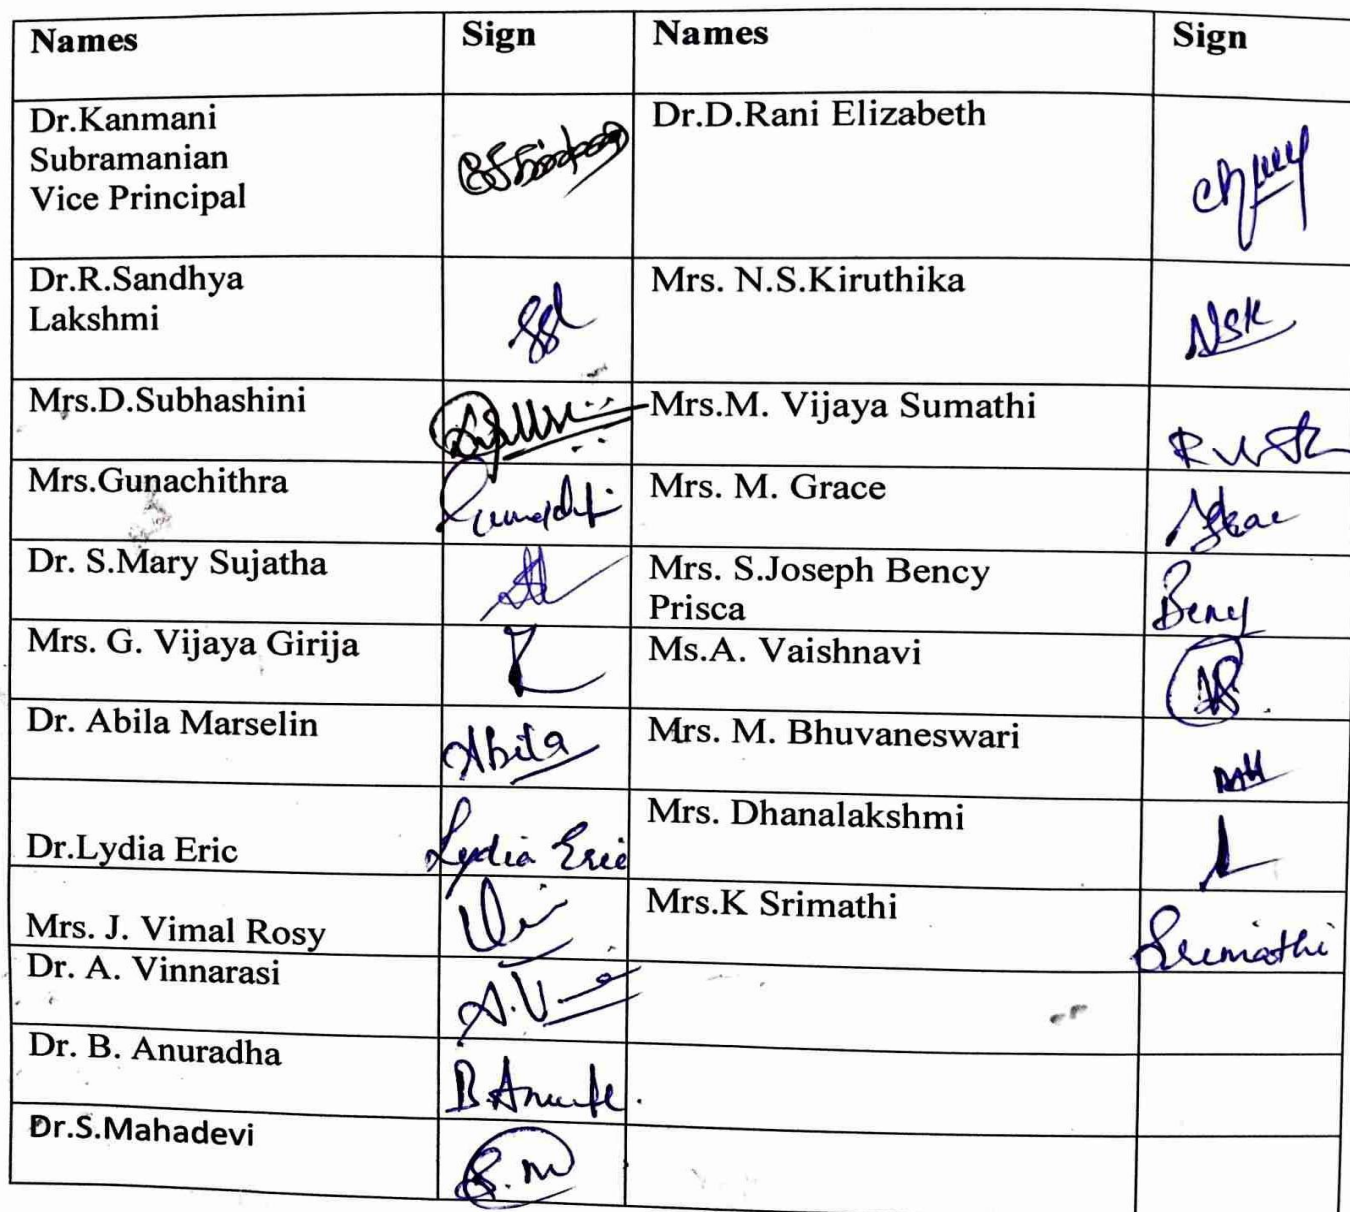 Names Sign Names Sign
Dr.Kanmani
Subramanian
Vice Principal
Dr.D.Rani Elizabeth
Dr.R.Sandhya
Lakshmi
Mrs. N.S.Kiruthika
NSK
Mrs.D.Subhashini
Mrs.M. Vijaya Sumathi
Mrs.Gunachithra
Mrs. M. Grace
Dr. S.Mary Sujatha
Mrs. S.Joseph Bency
Prisca
Bency
Mrs. G. Vijaya Girija
Ms.A. Vaishnavi
Dr. Abila Marselin
Abila
Mrs. M. Bhuvaneswari
Dr.Lydia Eric
Lydia Eric
Mrs. Dhanalakshmi
Mrs. J. Vimal Rosy
Mrs.K Srimathi
Srimathi
Dr. A. Vinnarasi
Dr. B. Anuradha
Dr.S.Mahadevi
S.M